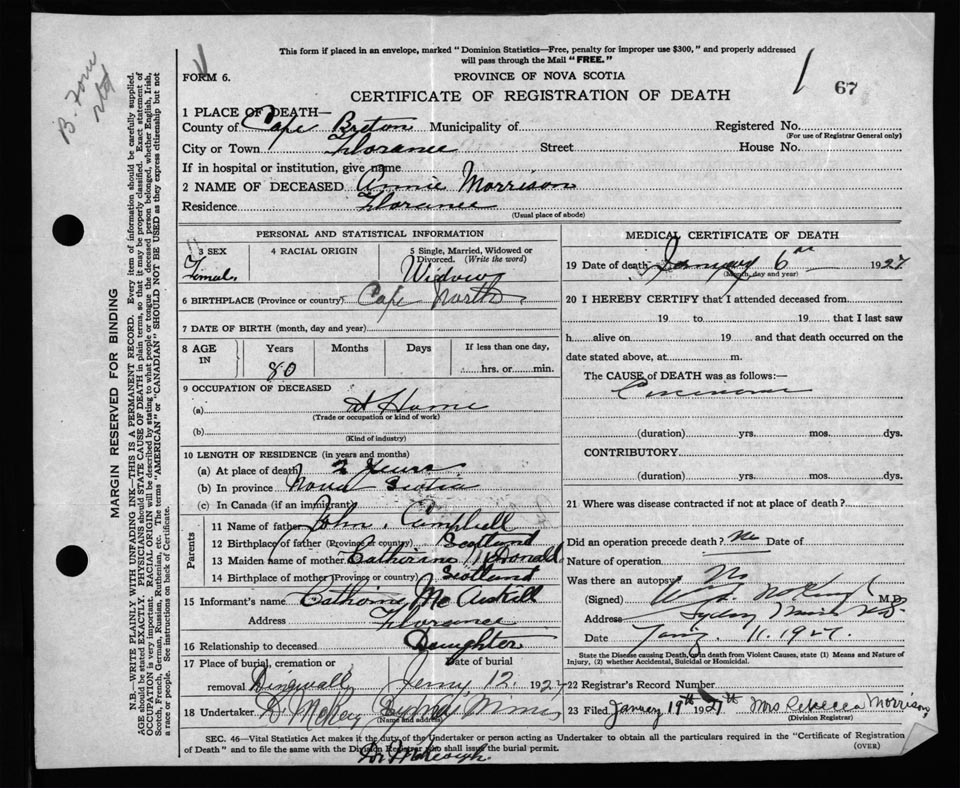 This form if placed in an envelope, marked "Dominion Statistics—Free, penalty for improper use $300," and properly addressed
will pass through the Mail "FREE."
FORM 6.
PROVINCE OF NOVA SCOTIA
67
CERTIFICATE OF REGISTRATION OF DEATH
1 PLACE OF DEATH—
County of Cape Breton Municipality of Registered No.
(For use of Registrar General only)
City or Town Florance Street House No.
If in hospital or institution, give name
2 NAME OF DECEASED Annie Morrison
Residence Florance
(Usual place of abode)
PERSONAL AND STATISTICAL INFORMATION
3 SEX 4 RACIAL ORIGIN 5 Single, Married, Widowed or
Divorced. (Write the word)
Female Widow
6 BIRTHPLACE (Province or country) Cape North
7 DATE OF BIRTH (month, day and year)
8 AGE IN Years Months Days If less than one day,
80 hrs. or min.
9 OCCUPATION OF DECEASED
(a) At Home
(Trade or occupation or kind of work)
(b)
(Kind of industry)
10 LENGTH OF RESIDENCE (in years and months)
(a) At place of death 2 Years
(b) In province Nova Scotia
(c) In Canada (if an immigrant)
Parents
11 Name of father John Campbell
12 Birthplace of father (Province or country) Scotland
13 Maiden name of mother Catherine McDonald
14 Birthplace of mother (Province or country) Scotland
15 Informant's name Catherine McAskill
Address Florance
16 Relationship to deceased Daughter
17 Place of burial, cremation or Date of burial
removal Dingwall Jany 12, 1927
18 Undertaker Sydney Mines
(Name and address)
MEDICAL CERTIFICATE OF DEATH
19 Date of death January 6 1927
(Month, day and year)
20 I HEREBY CERTIFY that I attended deceased from
19 to 19 that I last saw
h alive on 19 and that death occurred on the
date stated above, at m.
The CAUSE of DEATH was as follows:—
(duration) yrs. mos. dys.
CONTRIBUTORY
(duration) yrs. mos. dys.
21 Where was disease contracted if not at place of death?
Did an operation precede death? No Date of
Nature of operation
Was there an autopsy No
(Signed) M.D.
Address Sydney Mines N.S.
Date Jany. 11. 1927.
State the Disease causing Death, or in death from Violent Causes, state (1) Means and Nature of
Injury, (2) whether Accidental, Suicidal or Homicidal.
22 Registrar's Record Number
23 Filed January 19th 1927 Mrs Rebecca Morrison
(Division Registrar)
SEC. 46—Vital Statistics Act makes it the duty of the Undertaker or person acting as Undertaker to obtain all the particulars required in the "Certificate of Registration
of Death" and to file the same with the Division Registrar who shall issue the burial permit. (OVER)
MARGIN RESERVED FOR BINDING
N.B.—WRITE PLAINLY WITH UNFADING INK—THIS IS A PERMANENT RECORD. Every item of information should be carefully supplied.
AGE should be stated EXACTLY. PHYSICIANS should STATE CAUSE OF DEATH in plain terms, so that it may be properly classified. Exact statement of
OCCUPATION is very important. RACIAL ORIGIN will be described by stating to what people or tongue the deceased person belonged, whether English, Irish,
Scotch, French, German, Russian, Ruthenian, etc. The terms "AMERICAN" or "CANADIAN" SHOULD NOT BE USED as they express citizenship but not
a race or people. See instructions on back of Certificate.